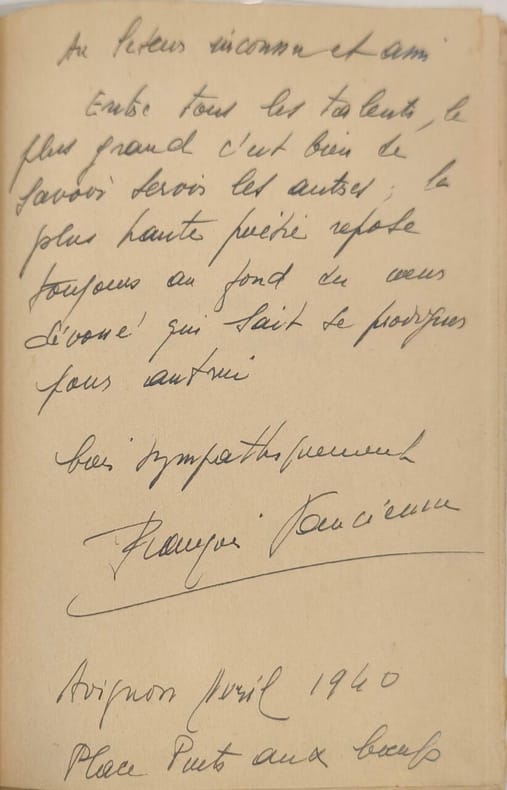 Au lecteur inconnu et ami
Entre tous les talents, le
plus grand c'est bien de
savoir servir les autres ; la
plus haute poésie repose
toujours au fond du cœur
dévoué qui sait se prodiguer
pour autrui
bien sympathiquement
François
Avignon Avril 1940
Place Puits aux bœufs